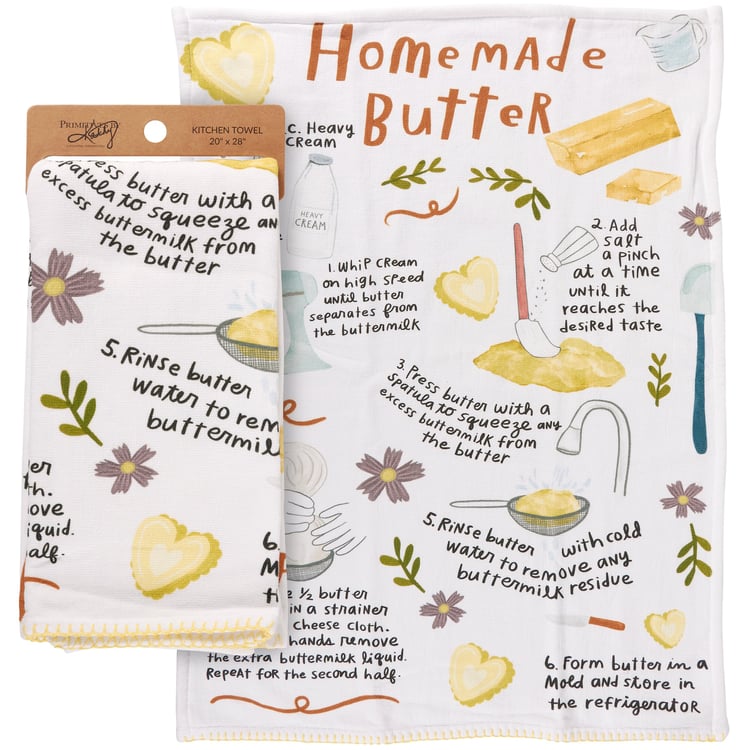 Homemade
Butter
PRIMITIVES BY
Kathy
KITCHEN TOWEL
20" x 28"
Press butter with a
spatula to squeeze any
excess buttermilk from
the butter
5. Rinse butter
water to rem
buttermil
er
th.
ove
iquid.
half.
6.
M
th
C. Heavy
Cream
HEAVY
CREAM
1. Whip cream
on high speed
until butter
separates from
the buttermilk
2. Add
salt
a pinch
at a time
until it
reaches the
desired taste
3. Press butter with a
spatula to squeeze any
excess buttermilk from
the butter
5. Rinse butter with cold
water to remove any
buttermilk residue
e ½ butter
in a strainer
cheese cloth.
hands remove
the extra buttermilk liquid.
Repeat for the second half.
6. Form butter in a
mold and store in
the refrigerator